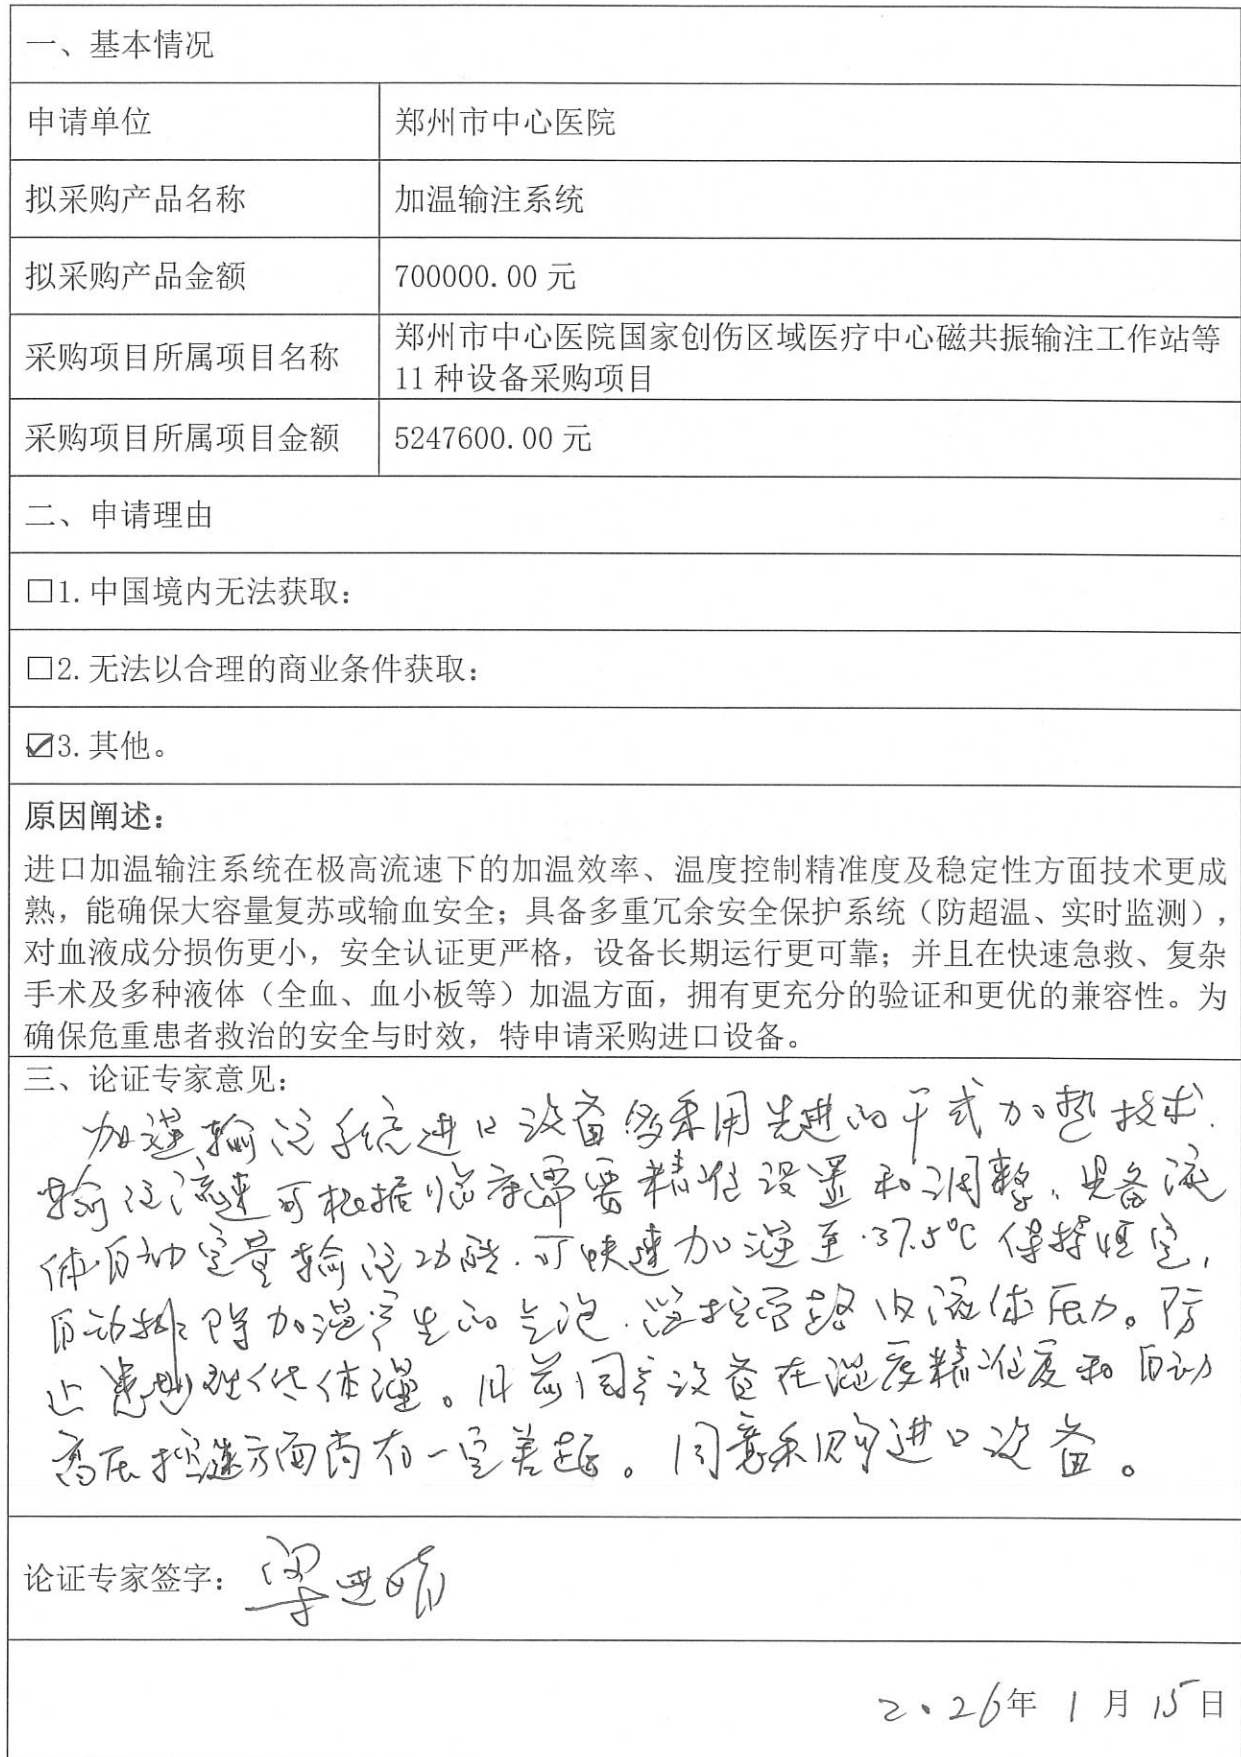 一、基本情况
申请单位
郑州市中心医院
拟采购产品名称
加温输注系统
拟采购产品金额
700000.00 元
采购项目所属项目名称
郑州市中心医院国家创伤区域医疗中心磁共振输注工作站等
11 种设备采购项目
采购项目所属项目金额
5247600.00 元
二、申请理由
□1.中国境内无法获取：
□2.无法以合理的商业条件获取：
☑3.其他。
原因阐述：
进口加温输注系统在极高流速下的加温效率、温度控制精准度及稳定性方面技术更成
熟，能确保大容量复苏或输血安全；具备多重冗余安全保护系统（防超温、实时监测），
对血液成分损伤更小，安全认证更严格，设备长期运行更可靠；并且在快速急救、复杂
手术及多种液体（全血、血小板等）加温方面，拥有更充分的验证和更优的兼容性。为
确保危重患者救治的安全与时效，特申请采购进口设备。
三、论证专家意见：
加温输注系统进口设备多采用先进的干式加热技术.
输注流速可根据临床需要精准设置和调整，具备液
体自动定量输注功能.可快速加温至37.5℃保持恒定，
自动排除加温产生的气泡.监控管路内液体压力。防
止患者出现低体温。目前国产设备在温度精准度和自动
高压控速方面尚有一定差距。同意采购进口设备。
论证专家签字：
2026年 1 月 15日